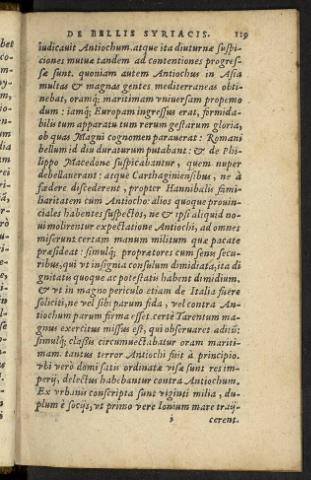 DE BELLIS SYRIACIS. 119
iudicauit Antiochum. atque ita diuturnæ suspi-
ciones mutuæ tandem ad contentiones progres-
sæ sunt. quoniam autem Antiochus in Asia
multas & magnas gentes mediterraneas obti-
nebat, oramq; maritimam vniuersam propemo
dum: iamq; Europam ingressus erat, formida-
bilis tum apparatu tum rerum gestarum gloria,
ob quas Magni cognomen parauerat: Romani
bellum id diu duraturum putabant: & de Phi-
lippo Macedone suspicabantur, quem nuper
debellauerant: atque Carthaginiensibus, ne à
fœdere discederent, propter Hannibalis fami-
liaritatem cum Antiocho: alios quoque prouin-
ciales habentes suspectos, ne & ipsi aliquid no-
ui molirentur expectatione Antiochi, ad omnes
miserunt certam manum militum quæ pacatè
præsideat: simulq; prætores cum senis secu-
ribus, qui vt insignia consulum dimidiata, ita di
gnitatis quoque ac potestatis habent dimidium.
& vt in magno periculo etiam de Italia fuere
soliciti, ne vel sibi parum fida, vel contra An-
tiochum parum firma esset. certè Tarentum ma-
gnus exercitus missus est, qui obseruaret aditũ:
simulq; classis circumuectabatur oram mariti-
mam. tantus terror Antiochi fuit à principio.
vbi verò domi satis ordinatæ visæ sunt res im-
perij, delectus habebantur contra Antiochum.
Ex vrbanis conscripta sunt viginti milia, du-
plum è socijs, vt primo vere Ionium mare traij-
i cerent.